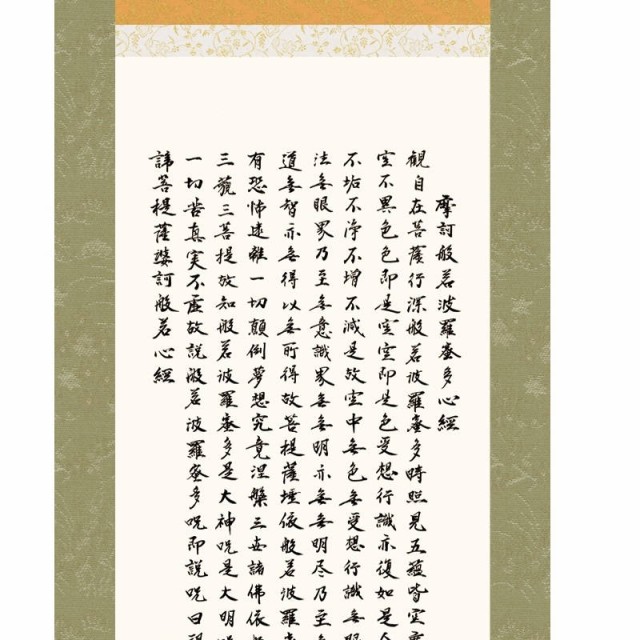 摩訶般若波羅蜜多心經
観自在菩薩行深般若波羅蜜多時照見五蘊皆空
空不異色色即是空空即是色受想行識亦復如是
不垢不浄不増不減是故空中無色無受想行識無
法無眼界乃至無意識界無無明亦無無明尽乃至
道無智亦無得以無所得故菩提薩埵依般若波羅
有恐怖遠離一切顛倒夢想究竟涅槃三世諸佛依
三藐三菩提故知般若波羅蜜多是大神呪是大明
一切苦真実不虚故説般若波羅蜜多呪即説呪曰
諦菩提薩婆訶般若心經